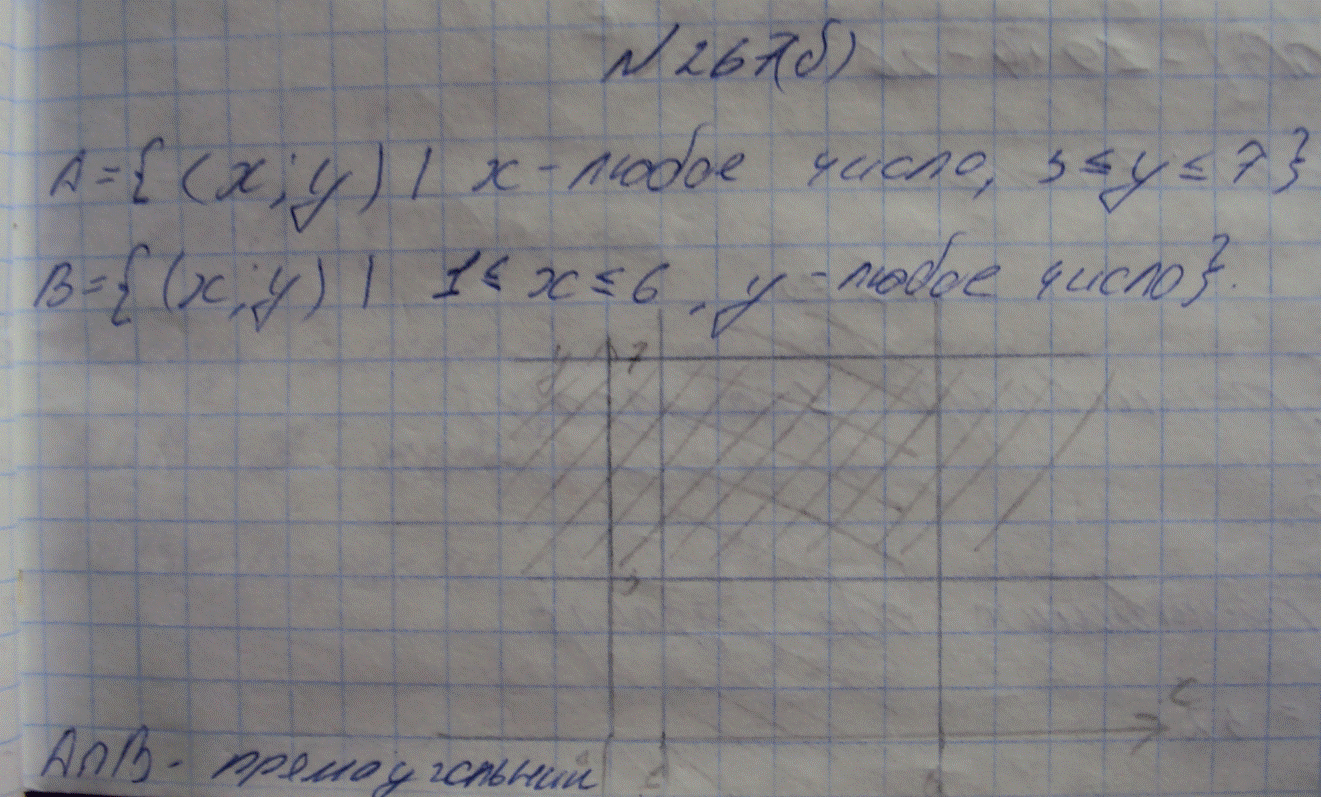 № 267(б)
A={(x;y) | x-любое число, 3≤y≤7}
B={(x;y) | 1≤x≤6, y-любое число}.
y 7
3
x
A∩B - прямоугольник